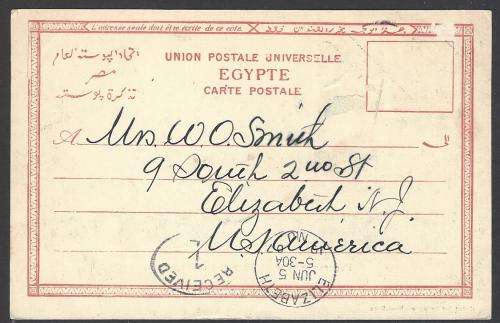 L'adresse seule doit être écrite de ce côté.
UNION POSTALE UNIVERSELLE
EGYPTE
CARTE POSTALE
اتحاد البوسته العام
مصر
تذكرة بوسته
A Mrs. W O Smith الى
9 South 2nd St
Elizabeth N.J.
U.S. America
RECEIVED
1
ELIZABETH
JUN 5
5-30A
N.J.